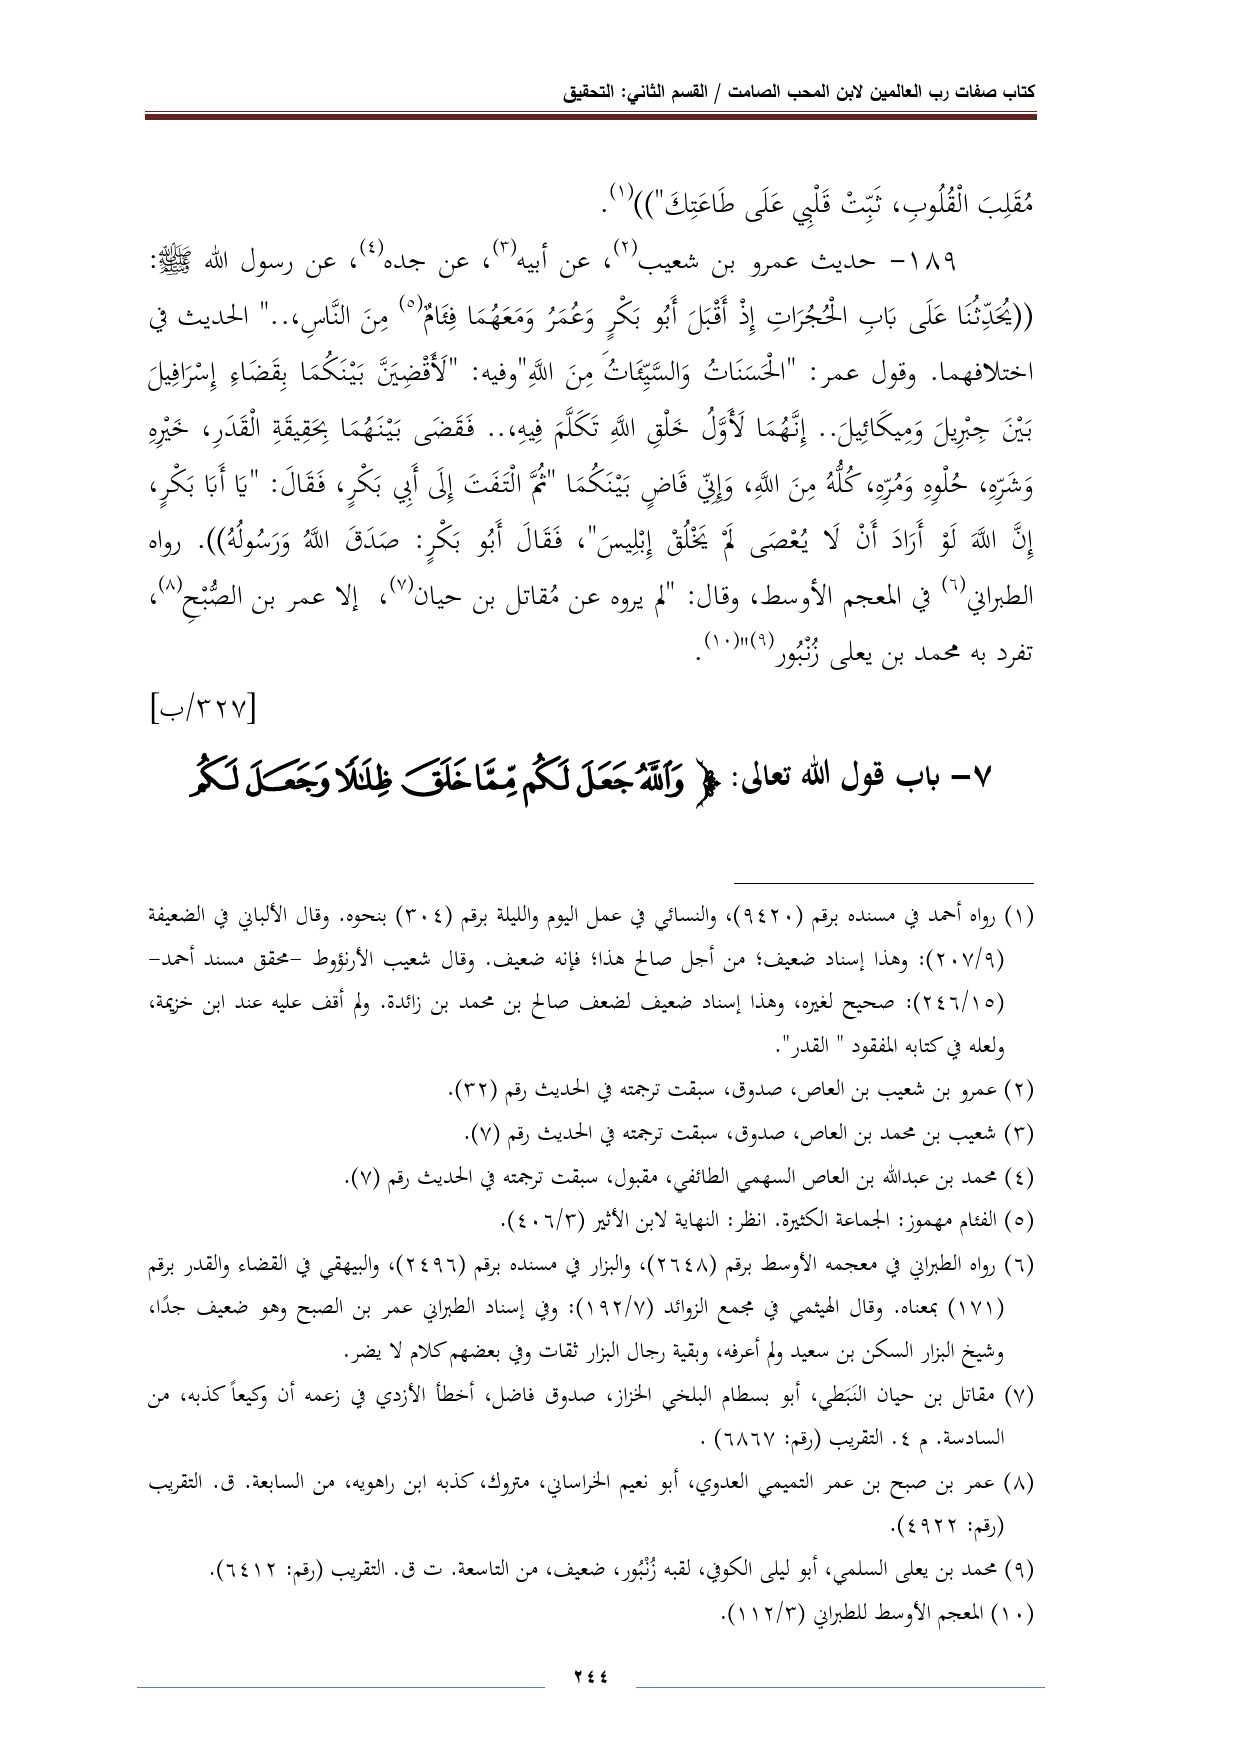 كتاب صفات رب العالمين لابن المحب الصامت / القسم الثاني: التحقيق
مُقَلِبَ الْقُلُوبِ، ثَبِّتْ قَلْبِي عَلَى طَاعَتِكَ"))(١).
١٨٩- حديث عمرو بن شعيب(٢)، عن أبيه(٣)، عن جده(٤)، عن رسول الله ﷺ:
((يُحَدِّثُنَا عَلَى بَابِ الْحُجُرَاتِ إِذْ أَقْبَلَ أَبُو بَكْرٍ وَعُمَرُ وَمَعَهُمَا فِئَامٌ(٥) مِنَ النَّاسِ،.." الحديث في
اختلافهما. وقول عمر: "الْحَسَنَاتُ وَالسَّيِّئَاتُ مِنَ اللَّهِ"وفيه: "لَأَقْضِيَنَّ بَيْنَكُمَا بِقَضَاءِ إِسْرَافِيلَ
بَيْنَ جِبْرِيلَ وَمِيكَائِيلَ.. إِنَّهُمَا لَأَوَّلُ خَلْقِ اللَّهِ تَكَلَّمَ فِيهِ،.. فَقَضَى بَيْنَهُمَا بِحَقِيقَةِ الْقَدَرِ، خَيْرِهِ
وَشَرِّهِ، حُلْوِهِ وَمُرِّهِ، كُلُّهُ مِنَ اللَّهِ، وَإِنِّي قَاضٍ بَيْنَكُمَا "ثُمَّ الْتَفَتَ إِلَى أَبِي بَكْرٍ، فَقَالَ: "يَا أَبَا بَكْرٍ،
إِنَّ اللَّهَ لَوْ أَرَادَ أَنْ لَا يُعْصَى لَمْ يَخْلُقْ إِبْلِيسَ"، فَقَالَ أَبُو بَكْرٍ: صَدَقَ اللَّهُ وَرَسُولُهُ)). رواه
الطبراني(٦) في المعجم الأوسط، وقال: "لم يروه عن مُقاتل بن حيان(٧)، إلا عمر بن الصُّبْحِ(٨)،
تفرد به محمد بن يعلى زُنْبُور(٩)"(١٠).
[٣٢٧/ب]
٧- باب قول الله تعالى: ﴿ وَٱللَّهُ جَعَلَ لَكُم مِّمَّا خَلَقَ ظِلَٰلًا وَجَعَلَ لَكُم
(١) رواه أحمد في مسنده برقم (٩٤٢٠)، والنسائي في عمل اليوم والليلة برقم (٣٠٤) بنحوه. وقال الألباني في الضعيفة
(٢٠٧/٩): وهذا إسناد ضعيف؛ من أجل صالح هذا؛ فإنه ضعيف. وقال شعيب الأرنؤوط -محقق مسند أحمد-
(٢٤٦/١٥): صحيح لغيره، وهذا إسناد ضعيف لضعف صالح بن محمد بن زائدة. ولم أقف عليه عند ابن خزيمة،
ولعله في كتابه المفقود " القدر".
(٢) عمرو بن شعيب بن العاص، صدوق، سبقت ترجمته في الحديث رقم (٣٢).
(٣) شعيب بن محمد بن العاص، صدوق، سبقت ترجمته في الحديث رقم (٧).
(٤) محمد بن عبدالله بن العاص السهمي الطائفي، مقبول، سبقت ترجمته في الحديث رقم (٧).
(٥) الفئام مهموز: الجماعة الكثيرة. انظر: النهاية لابن الأثير (٤٠٦/٣).
(٦) رواه الطبراني في معجمه الأوسط برقم (٢٦٤٨)، والبزار في مسنده برقم (٢٤٩٦)، والبيهقي في القضاء والقدر برقم
(١٧١) بمعناه. وقال الهيثمي في مجمع الزوائد (١٩٢/٧): وفي إسناد الطبراني عمر بن الصبح وهو ضعيف جدًا،
وشيخ البزار السكن بن سعيد ولم أعرفه، وبقية رجال البزار ثقات وفي بعضهم كلام لا يضر.
(٧) مقاتل بن حيان النَبَطي، أبو بسطام البلخي الخزاز، صدوق فاضل، أخطأ الأزدي في زعمه أن وكيعاً كذبه، من
السادسة. م ٤. التقريب (رقم: ٦٨٦٧) .
(٨) عمر بن صبح بن عمر التميمي العدوي، أبو نعيم الخراساني، متروك، كذبه ابن راهويه، من السابعة. ق. التقريب
(رقم: ٤٩٢٢).
(٩) محمد بن يعلى السلمي، أبو ليلى الكوفي، لقبه زُنْبُور، ضعيف، من التاسعة. ت ق. التقريب (رقم: ٦٤١٢).
(١٠) المعجم الأوسط للطبراني (١١٢/٣).
٢٤٤